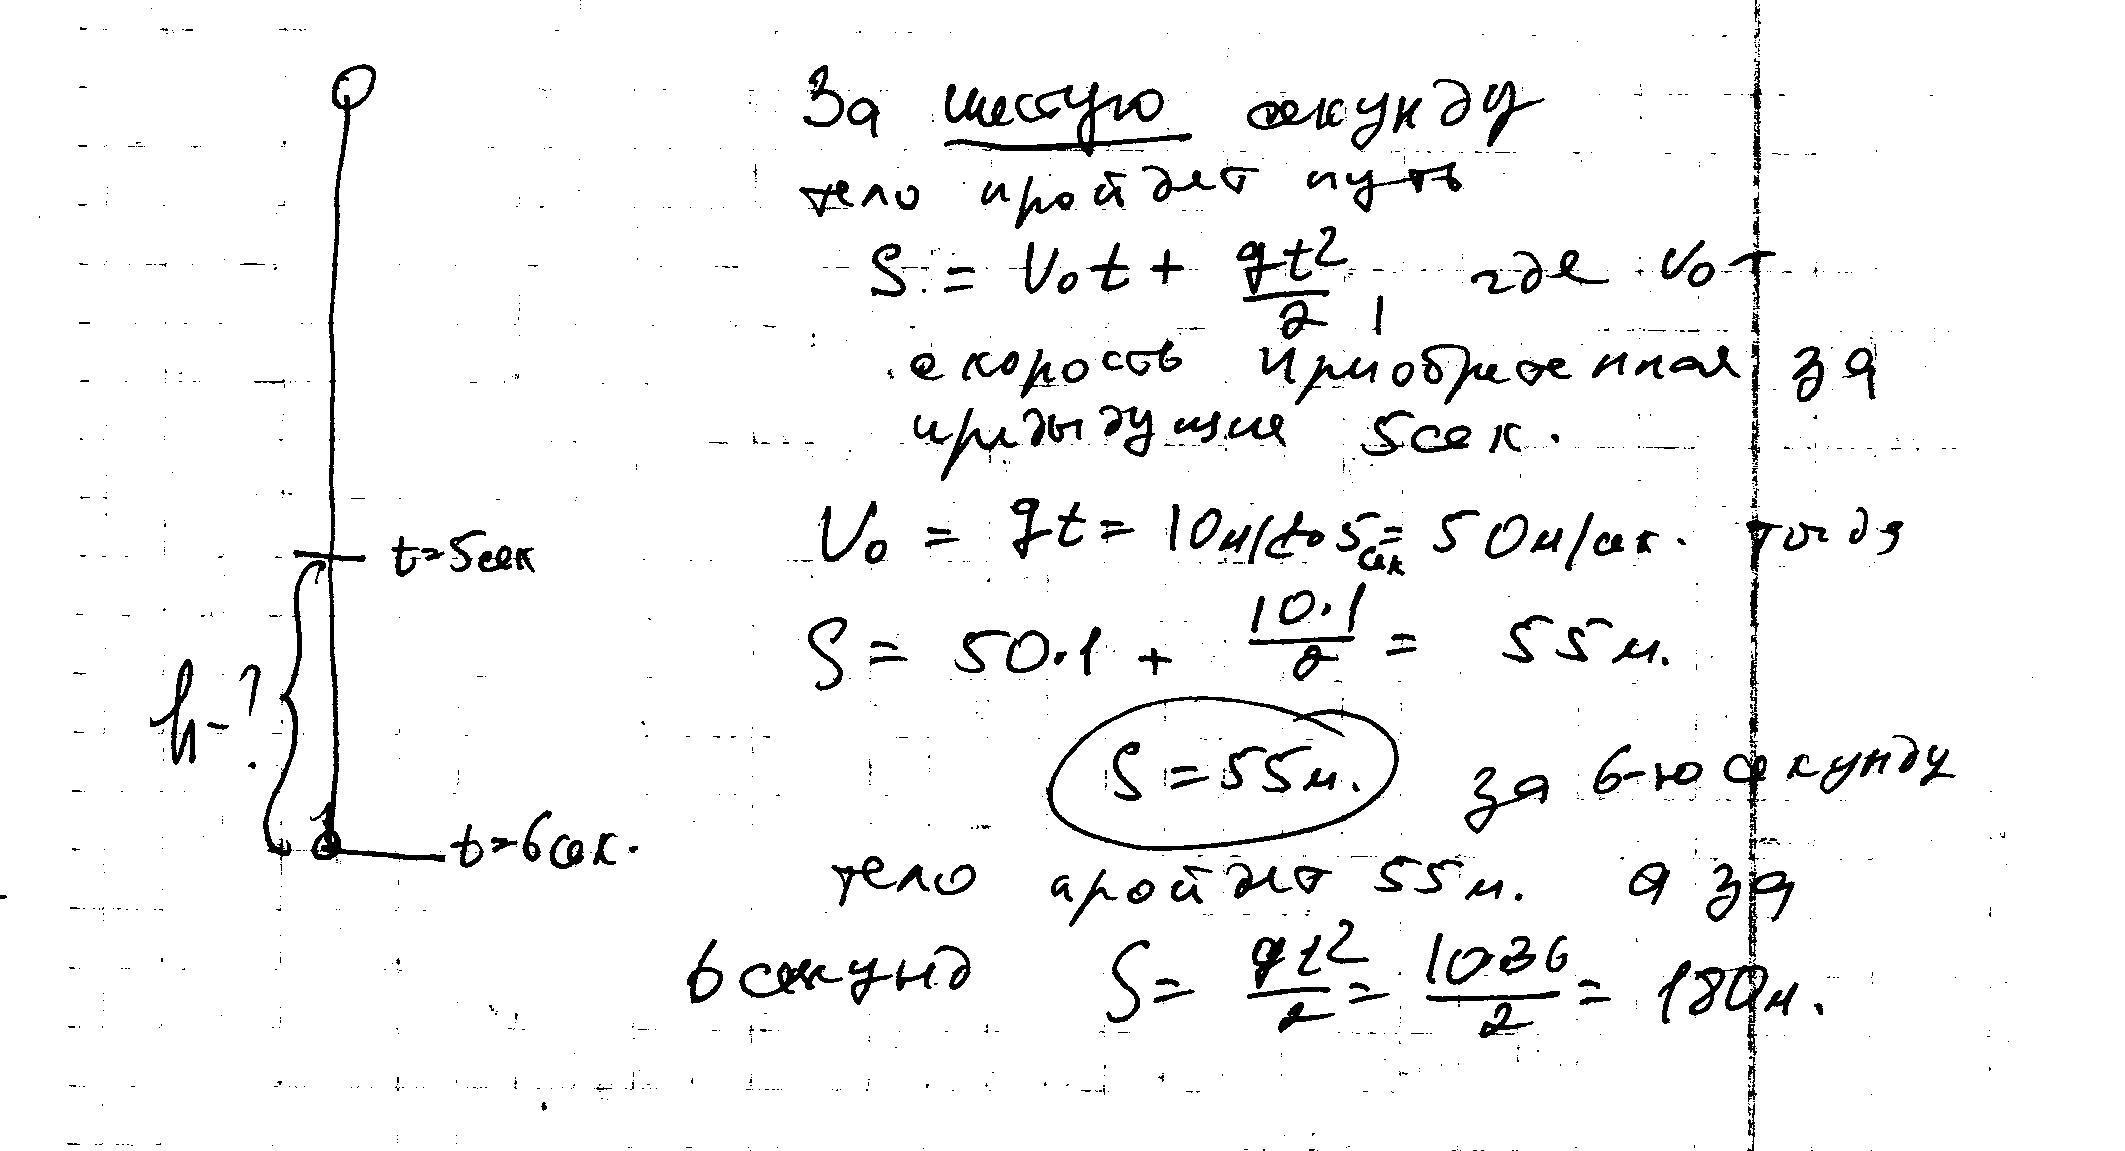 За шестую секунду
тело пройдет путь
S = V₀t + gt²/2, где V₀ -
скорость приобретенная за
предыдущие 5сек.
t=5сек
V₀ = gt = 10м/с²·5сек = 50м/сек. тогда
S = 50·1 + 10·1/2 = 55м.
h-?
S = 55м. за 6-ю секунду
t=6сек.
тело пройдет 55м. а за
6 секунд S = gt²/2 = 10·36/2 = 180м.